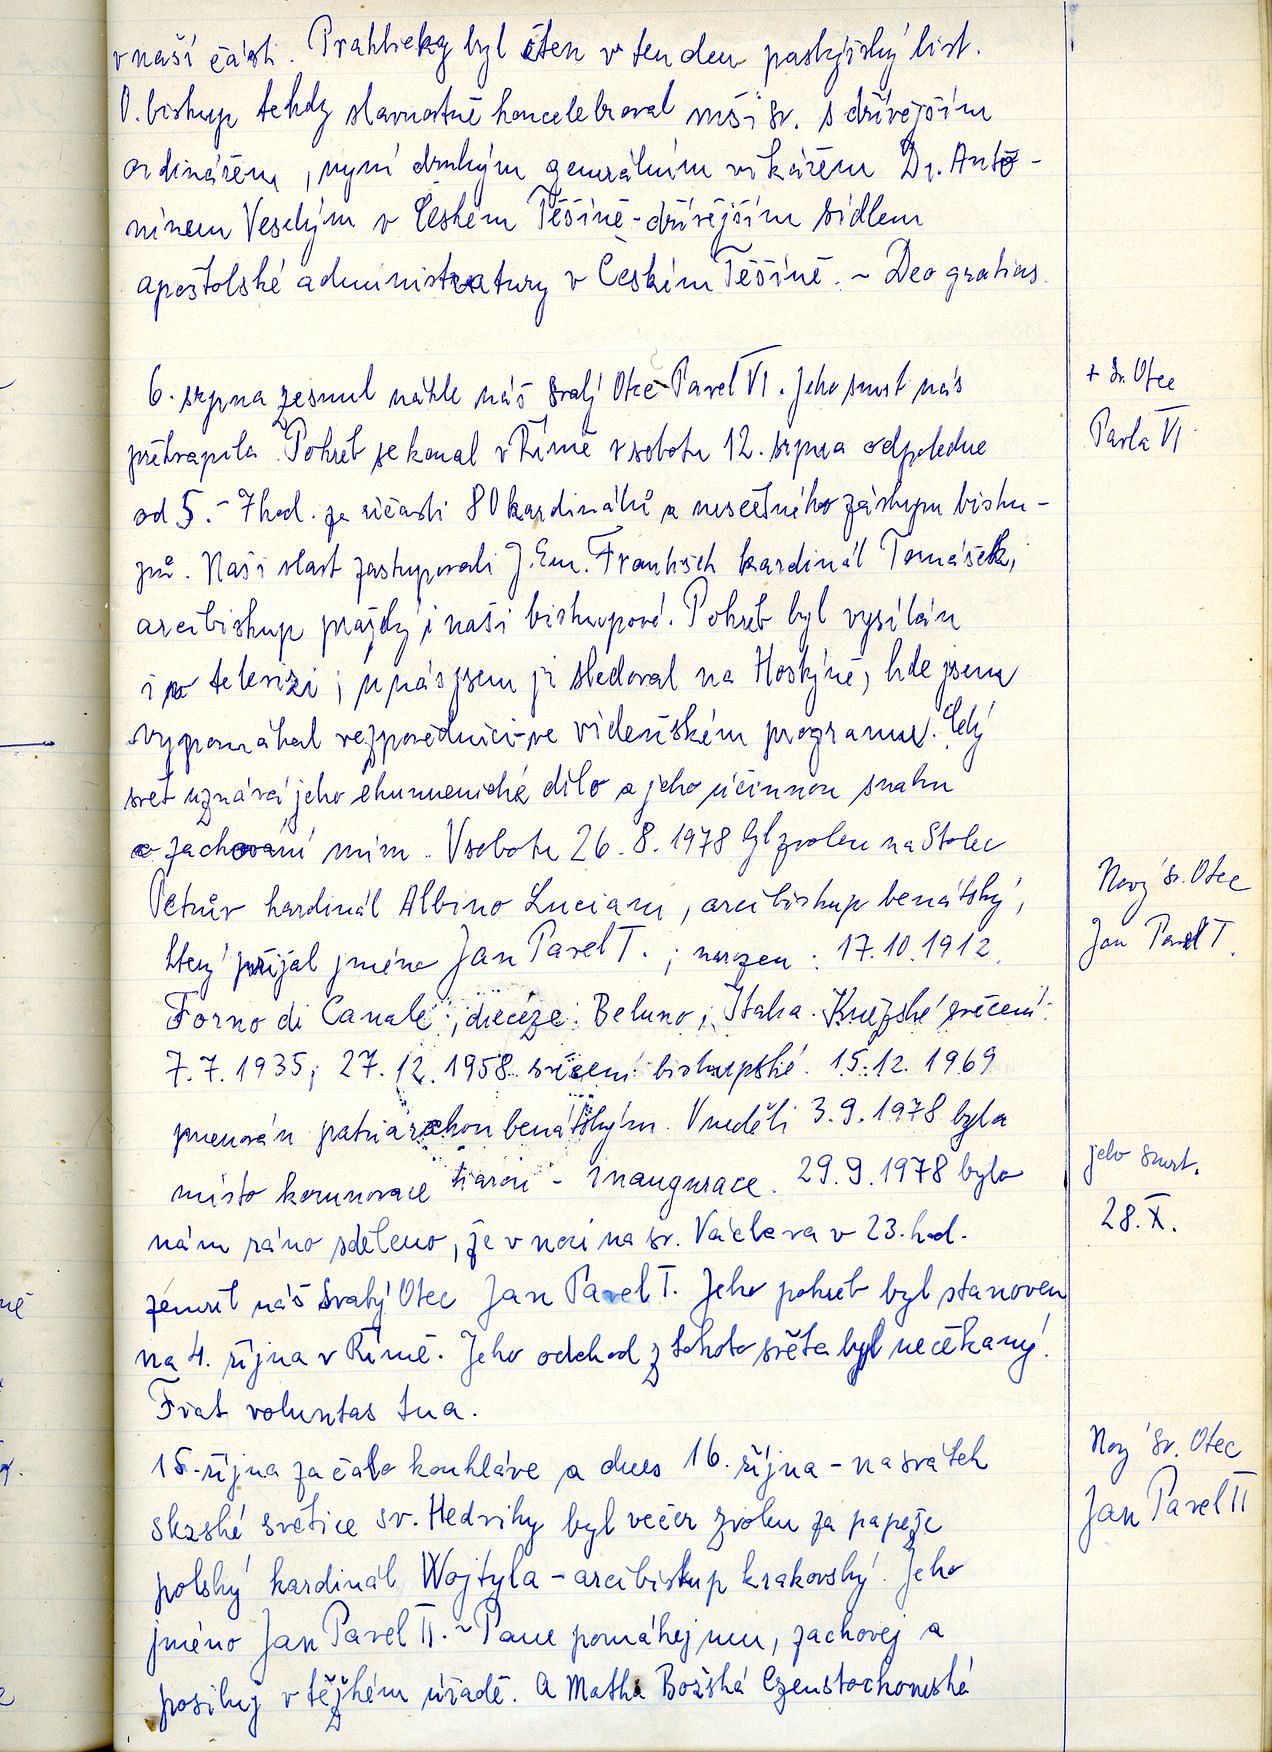 v naší části. Prakticky byl čten v ten den pastýřský list.
O. biskup tehdy slavnostně koncelebroval mši sv. s dřívějším
ordinářem, nyní druhým generálním vikářem Dr. Anto-
nínem Veselým v Českém Těšíně - dřívějším sídlem
apoštolské administratury v Českém Těšíně. ~ Deo gratias.
6. srpna zesnul náhle náš svatý Otec Pavel VI. Jeho smrt nás
+ Sv. Otce
překvapila. Pohřeb se konal v Římě v sobotu 12. srpna odpoledne
Pavla VI.
od 5. - 7 hod. za účasti 80 kardinálů a nesčetného zástupu bisku-
pů. Naši vlast zastupovali J. Em. František kardinál Tomášek,
arcibiskup pražský i naši biskupové. Pohřeb byl vysílán
i v televizi; u nás jsem ji sledoval na Hostýně, kde jsem
vypomáhal ve zpovědnici - ve vídeňském programu. Celý
svět uznává jeho ekumenické dílo a jeho účinnou snahu
o zachování míru. V sobotu 26. 8. 1978 byl zvolen na Stolec
Petrův kardinál Albino Luciani, arcibiskup benátský,
Nový sv. Otec
který přijal jméno Jan Pavel I.; narozen: 17.10.1912.
Jan Pavel I.
Forno di Canale; diecéze: Beluno; Italia. Kněžské svěcení:
7.7.1935; 27.12.1958 svěcení biskupské. 15.12.1969
jmenován patriarchou benátským. V neděli 3.9.1978 byla
místo korunovace tiarou - inaugurace. 29.9.1978 bylo
jeho smrt.
nám ráno sděleno, že v noci na sv. Václava v 23. hod.
28. X.
zemřel náš svatý Otec Jan Pavel I. Jeho pohřeb byl stanoven
na 4. října v Římě. Jeho odchod z tohoto světa byl nečekaný!
Fiat voluntas tua.
15. října začalo konkláve a dnes 16. října - na svátek
Nový sv. Otec
slezské světice sv. Hedviky byl večer zvolen za papeže
Jan Pavel II
polský kardinál Wojtyla - arcibiskup krakovský. Jeho
jméno Jan Pavel II. ~ Pane pomáhej mu, zachovej a
posiluj v těžkém úřadě. A Matka Božská Czenstochowská